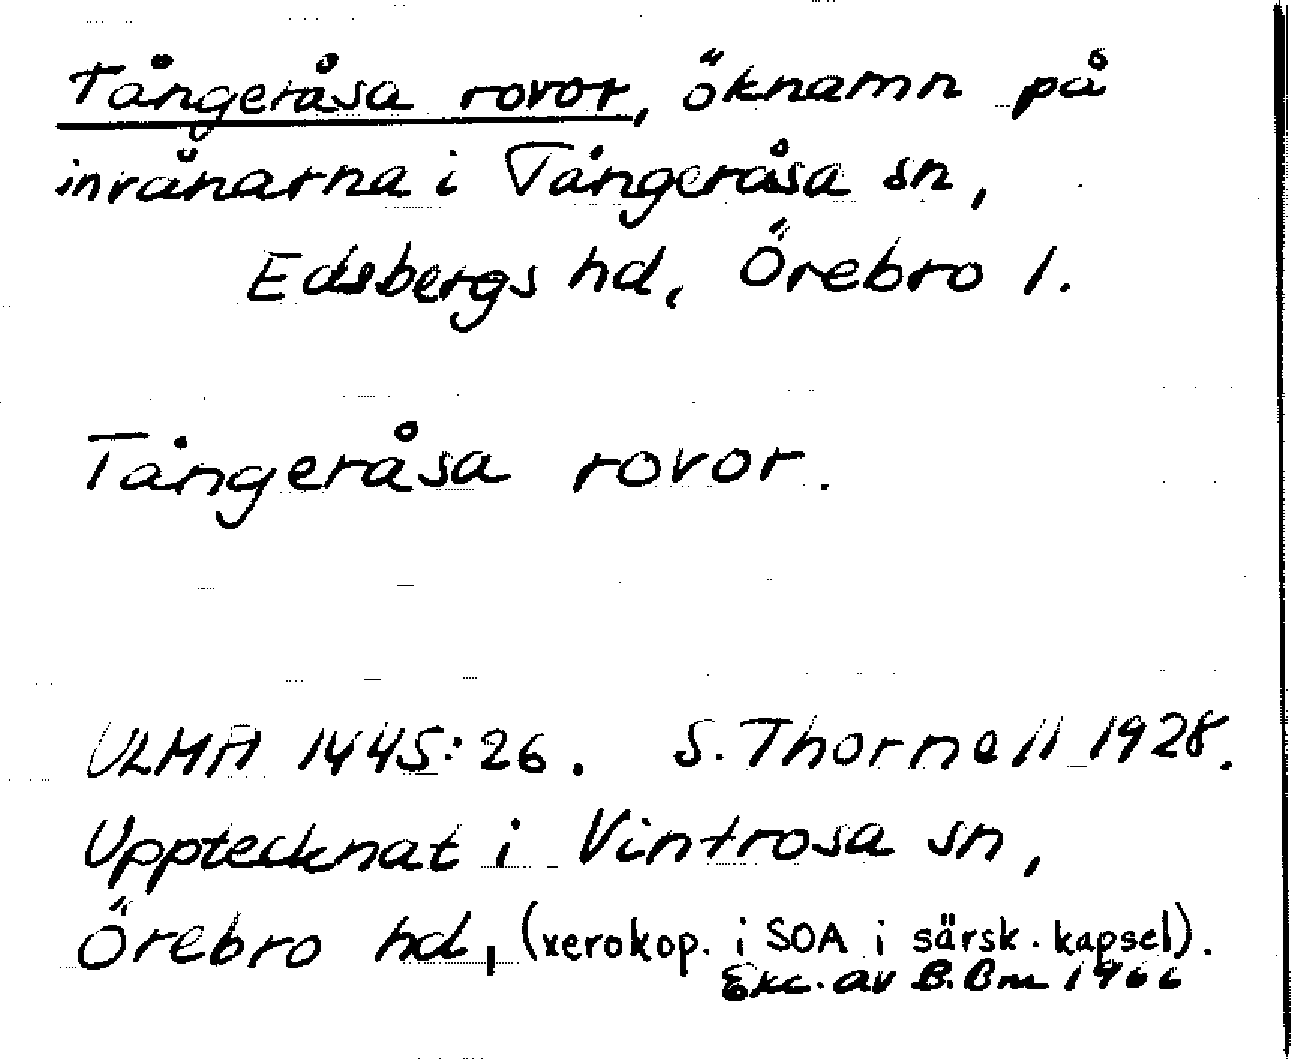 Tångeråsa rovor, öknamn på
invånarna i Tångeråsa sn,
Edsbergs hd, Örebro l.
Tångeråsa rovor.
ULMA 1445:26. S. Thornell 1928.
Upptecknat i Vintrosa sn,
Örebro hd, (xerokop. i SOA i särsk. kapsel).
Exc. av B. Bm 1966